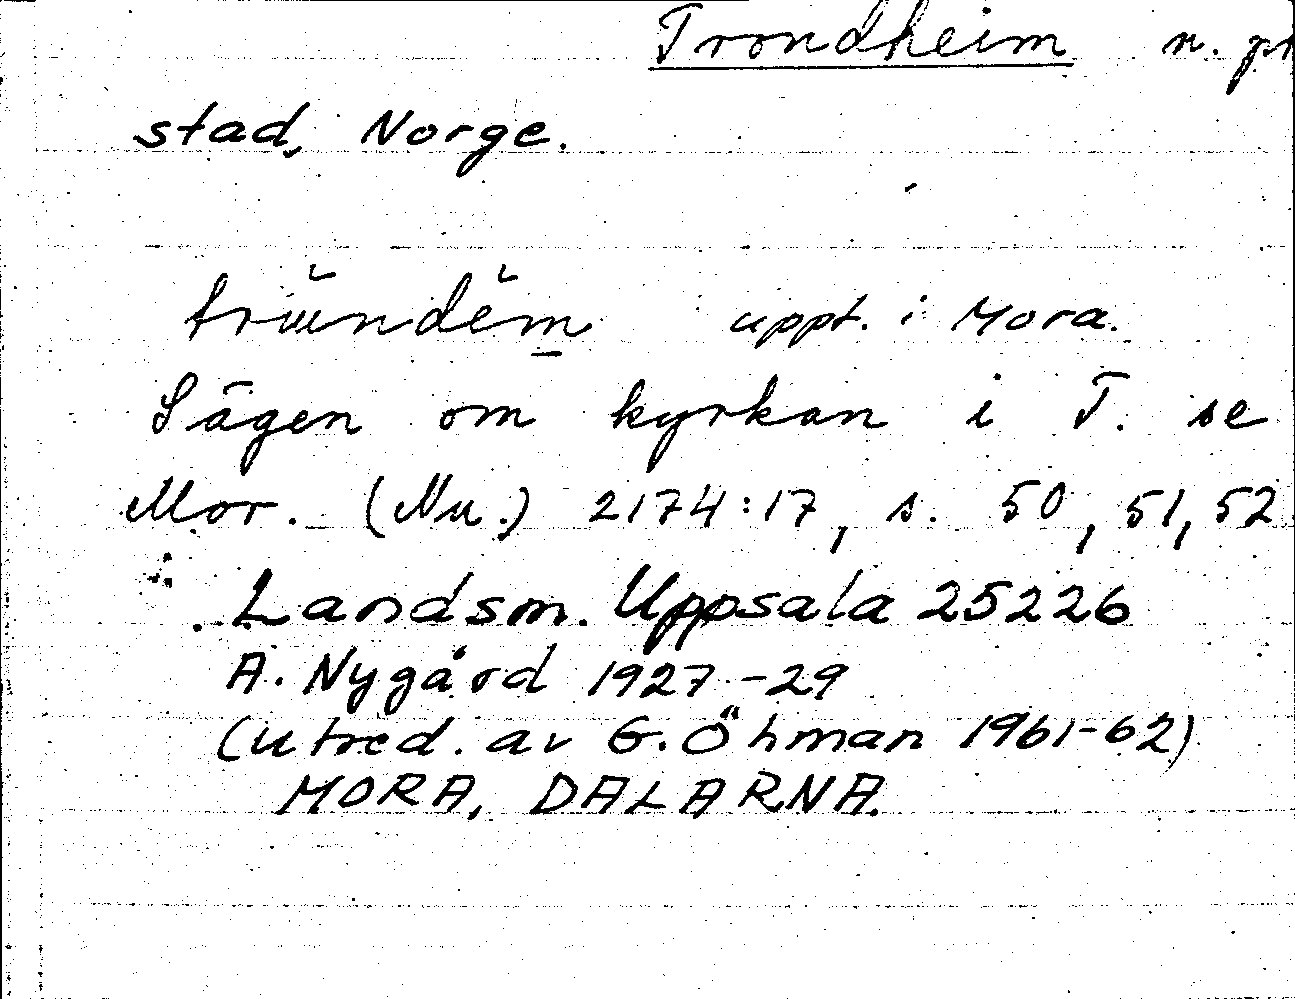 Trondheim n. pr
stad, Norge.
uppt. i Mora.
Sägen om kyrkan i T. se
Mor. (Nu.) 2174:17, s. 50, 51, 52
Landsm. Uppsala 25226
A. Nygård 1927-29
(utred. av G. Öhman 1961-62)
MORA, DALARNA.